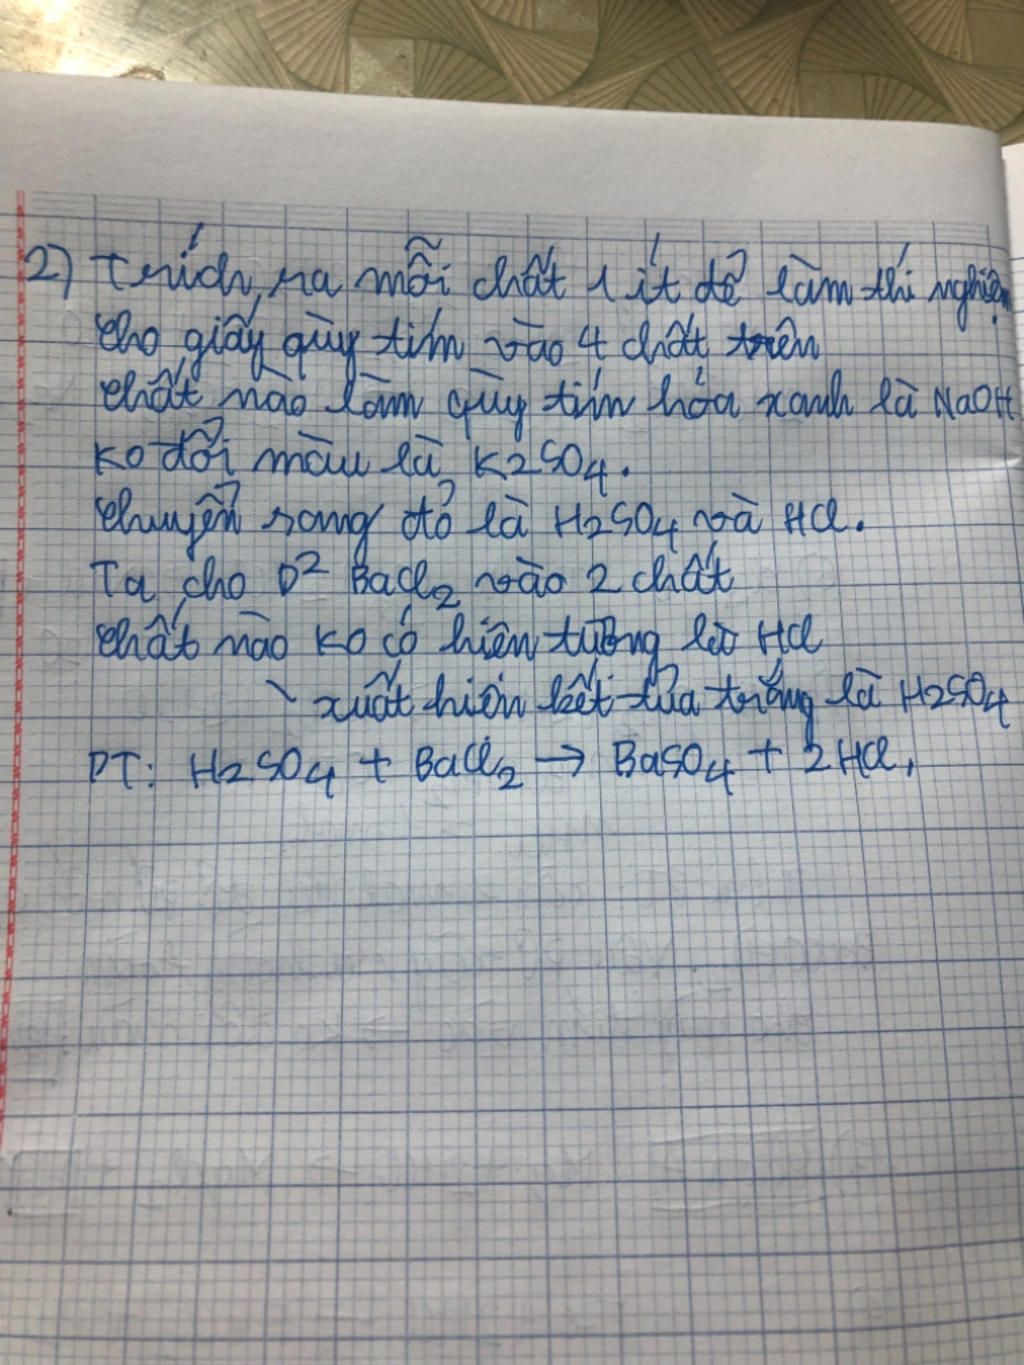 2) Trích ra mỗi chất 1 ít để làm thí nghiệm
Cho giấy qùy tím vào 4 chất trên
Chất nào làm qùy tím hóa xanh là NaOH
Ko đổi màu là K2SO4.
Chuyển sang đỏ là H2SO4 và HCl.
Ta cho D2 BaCl2 vào 2 chất
Chất nào ko có hiện tượng là HCl
\ xuất hiện kết tủa trắng là H2SO4
PT: H2SO4 + BaCl2 → BaSO4 + 2HCl,